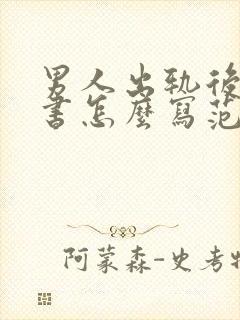 男人出轨後
書怎麼寫范
阿蒙森-史考特